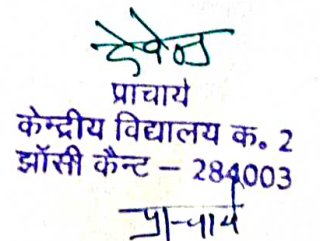 प्राचार्य
केन्द्रीय विद्यालय क. 2
झॉसी कैन्ट – 284003
प्राचार्य